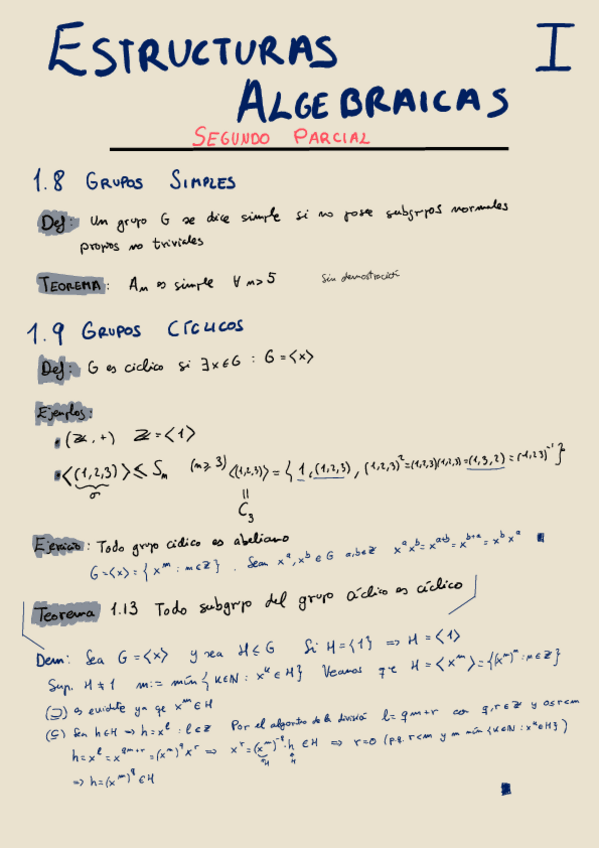 ESTRUCTURAS I
ALGEBRAICAS
SEGUNDO PARCIAL
1.8 GRUPOS SIMPLES
Def: Un grupo G se dice simple si no posee subgrupos normales
propios no triviales
TEOREMA: An es simple ∀ n>5 Sin demostración
1.9 GRUPOS CÍCLICOS
Def: G es cíclico si ∃x∈G : G=<x>
Ejemplos:
(ℤ,+) ℤ=<1>
<(1,2,3)> ≤ Sm (m≥3) <(1,2,3)> = {1, (1,2,3), (1,2,3)²=(1,2,3)(1,2,3)=(1,3,2)=(1,2,3)⁻¹}
σ
=
C₃
Ejercicio: Todo grupo cíclico es abeliano
G=<x>={x^m : m∈ℤ}. Sean x^a, x^b ∈ G a,b∈ℤ x^a x^b = x^(a+b) = x^(b+a) = x^b x^a
Teorema 1.13 Todo subgrupo del grupo cíclico es cíclico
Dem: Sea G=<x> y sea H≤G Si H={1} ⇒ H=<1>
Sup. H≠1 m:= mín{k∈ℕ : x^k∈H} Veamos que H=<x^m>={(x^m)^n : n∈ℤ}
(⊇) es evidente ya que x^m∈H
(⊆) Sea h∈H ⇒ h=x^l : l∈ℤ Por el algoritmo de la división l=qm+r con q,r∈ℤ y 0≤r<m
h=x^l=x^(qm+r)=(x^m)^q x^r ⇒ x^r=(x^m)^(-q)·h ∈H ⇒ r=0 (p.q. r<m y m mín{k∈ℕ : x^k∈H})
∈H ∈H
⇒ h=(x^m)^q ∈H